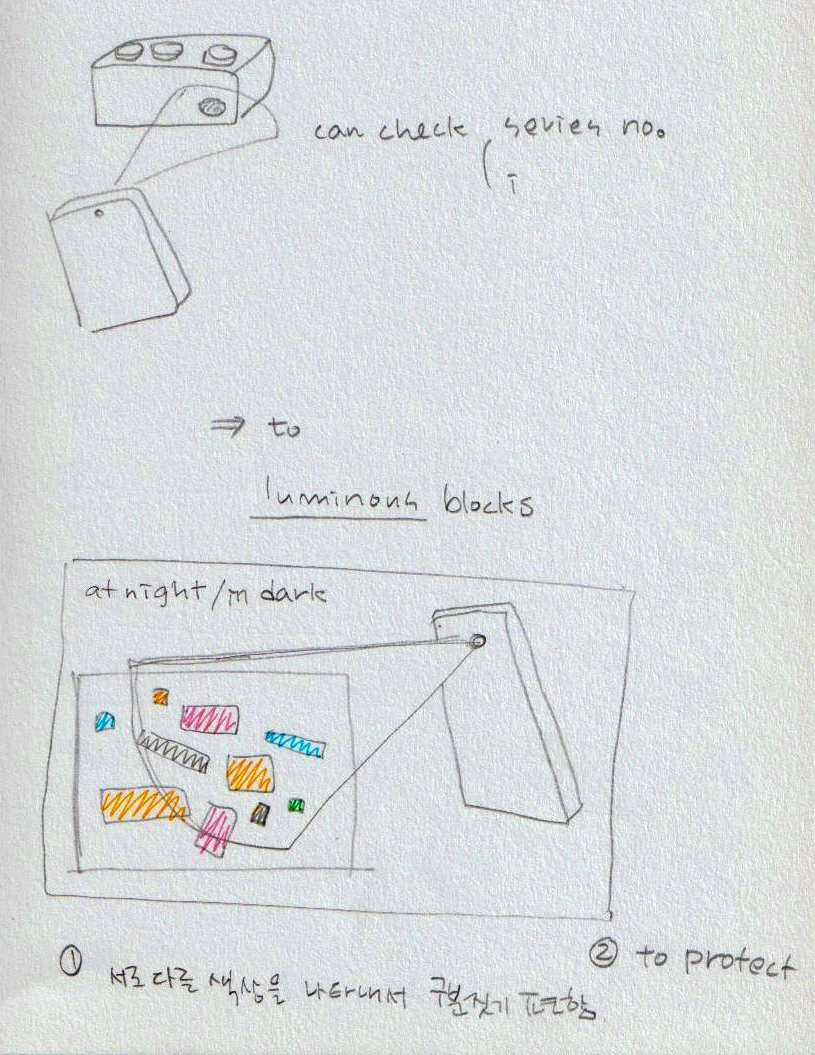 can check series no.
⇒ to
luminous blocks
at night/in dark
① 서로 다른 색상을 나타내서 구분짓기
② to protect